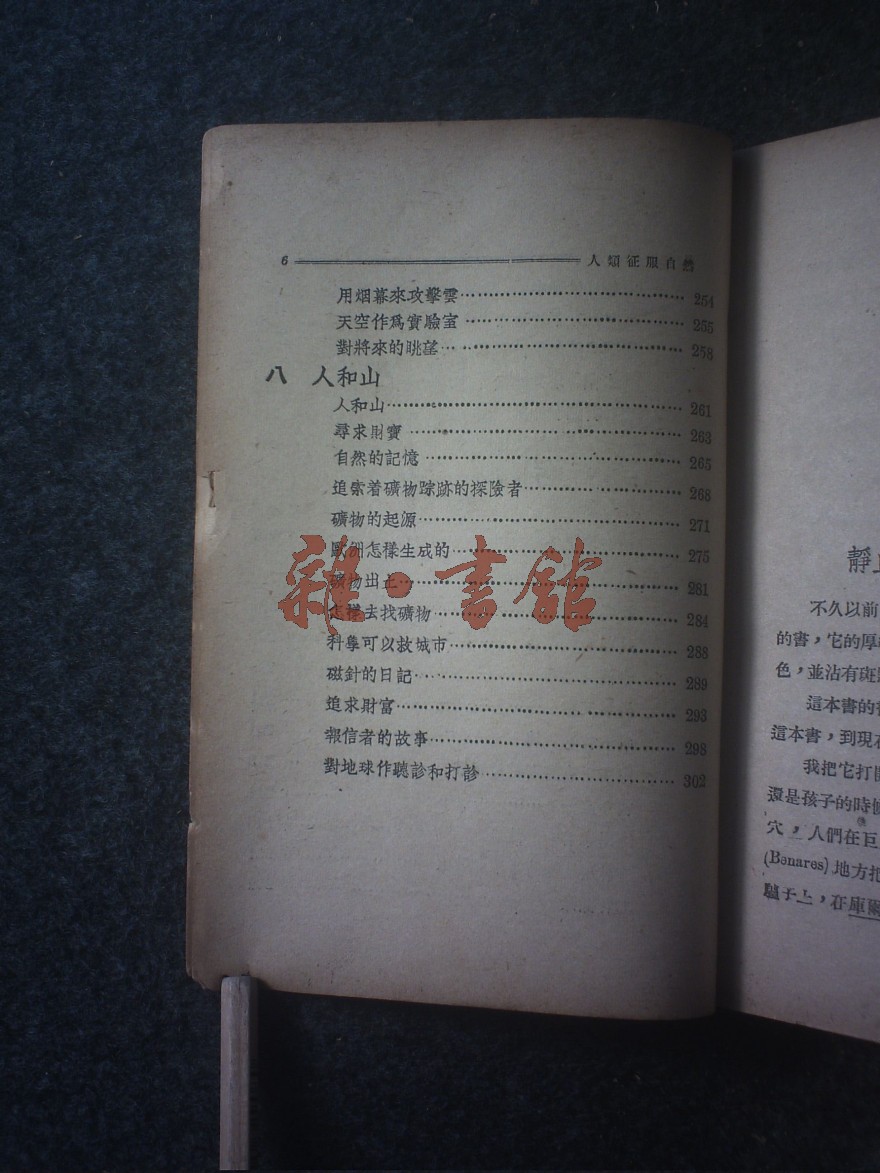 6 人類征服自然
用烟幕來攻擊雲 254
天空作爲實驗室 255
對將來的眺望 258
八 人和山
人和山 261
尋求財寶 263
自然的記憶 265
追索着礦物踪跡的探險者 268
礦物的起源 271
歐洲怎樣生成的 275
礦物出土 281
怎樣去找礦物 284
科學可以救城市 288
磁針的日記 289
追求財富 293
報信者的故事 298
對地球作聽診和打診 302
雜·書館
靜
不久以前
的書，它的厚
色，並沾有斑
這本書的
這本書，到現在
我把它打開
還是孩子的時候
穴，人們在巨
(Benares) 地方把
驢子上，在庫爾